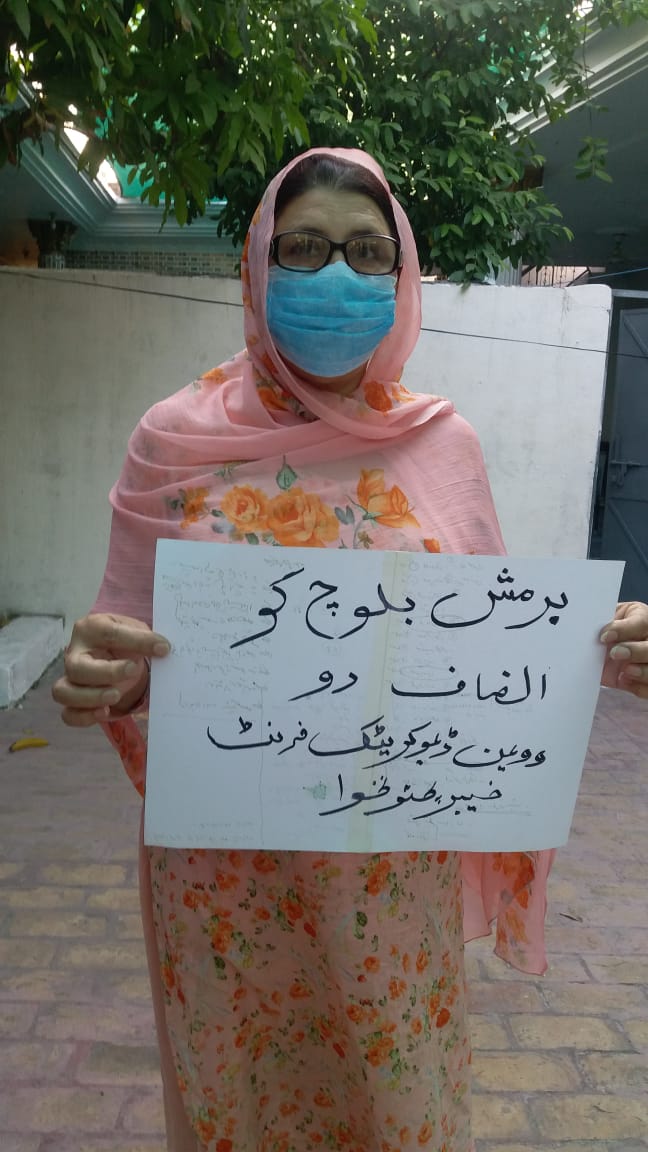 برمش بلوچ کو
انصاف دو
وومین ڈیموکریٹک فرنٹ
خیبر پختونخوا